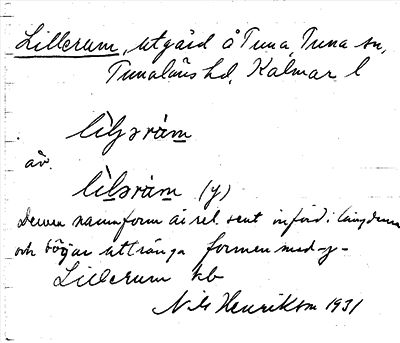 Lillerum, utgård å Tuna, Tuna sn,
Tunaläns hd, Kalmar l
lìl̥ɜràm
äv.
lìlɜràm (y)
Denna namnform är rel. sent införd i längderna
och börjar uttränga formen med -y-
Lillerum kb
Nils Henrikson 1931